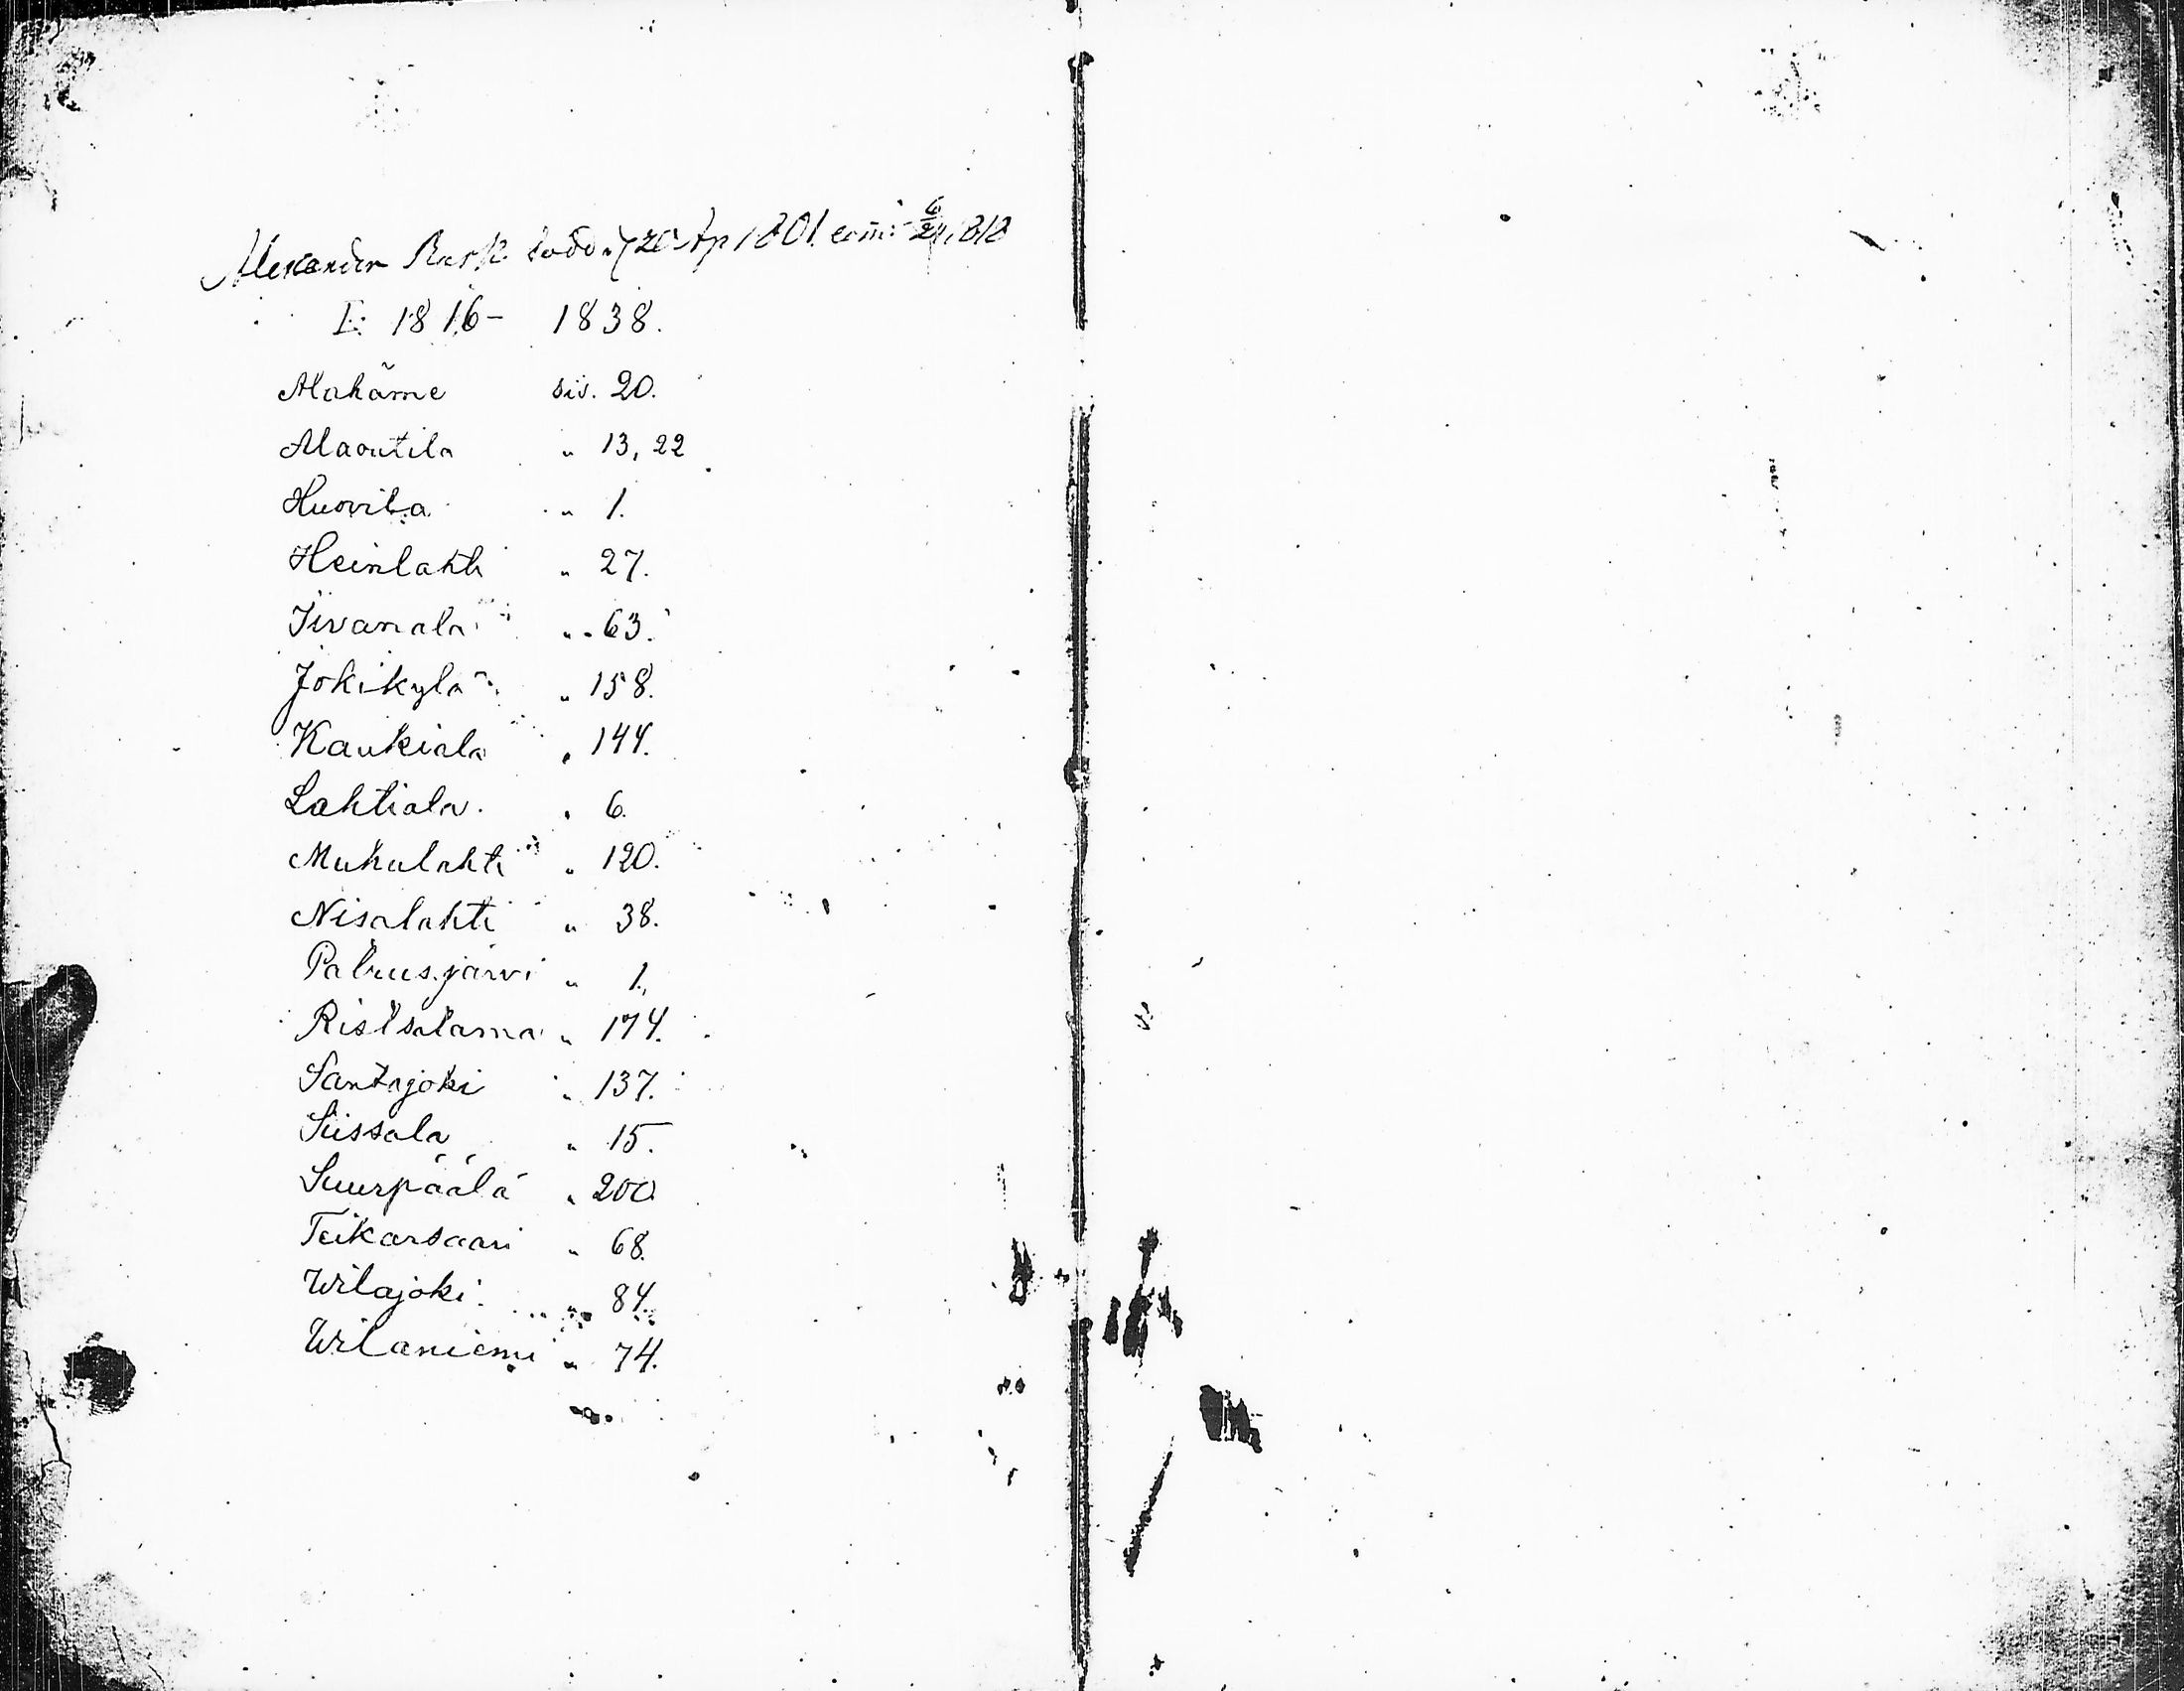 Alexander Rask född 20 Ap 1801. com: 6/24 1818
I: 1816- 1838.
Alahäme siv. 20.
Alaoutila " 13, 22
Huovila " 1.
Heinlahti " 27.
Iivanala " 63.
Jokikylä " 158.
Kaukiala " 144.
Lahtiala " 6.
Muhulahti " 120.
Nisalahti " 38.
Patrusjärvi " 1.
Ristsatama " 174.
Santajoki " 137.
Siissala " 15.
Suurpäälä " 200
Teikarsaari " 68.
Wilajoki " 84.
Wilaniemi " 74.